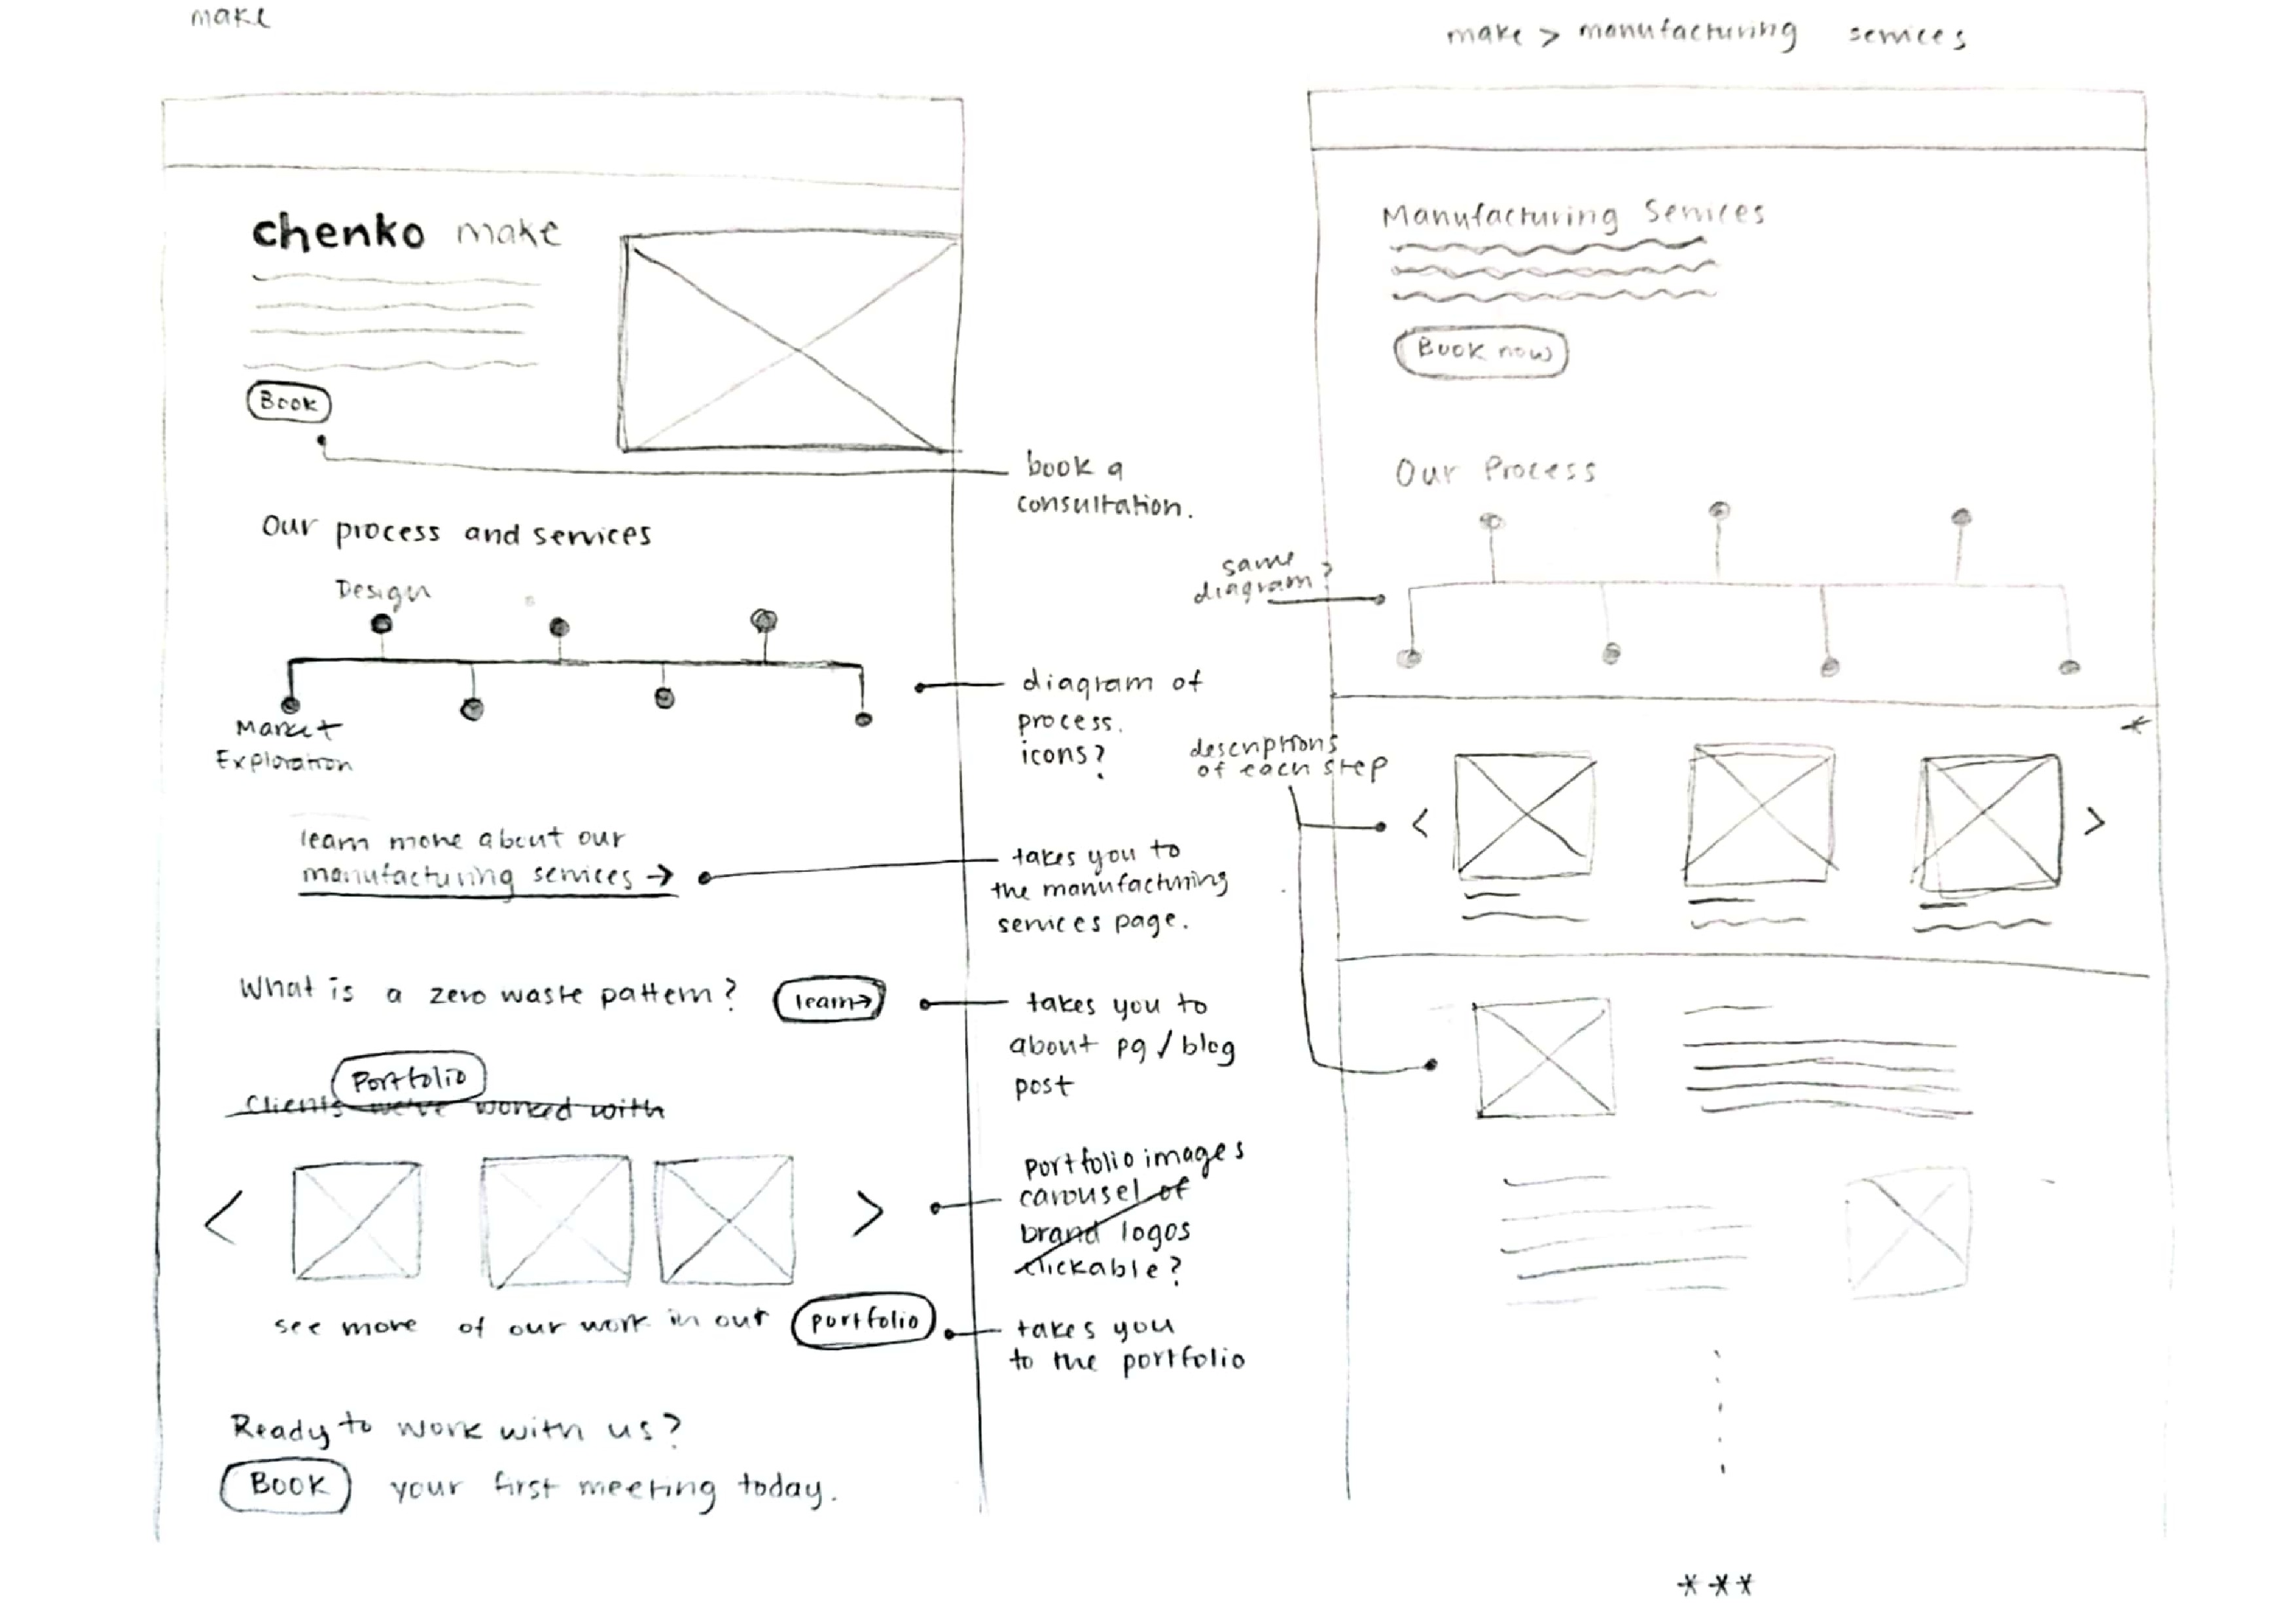 make
chenko make
Book
book a
consultation.
Our process and services
Design
Market
Exploration
diagram of
process.
icons?
learn more about our
manufacturing services →
takes you to
the manufacturing
services page.
What is a zero waste pattern? learn→
takes you to
about pg / blog
post
Portfolio
Clients we've worked with
< >
portfolio images
carousel of
brand logos
clickable?
see more of our work in our portfolio
takes you
to the portfolio
Ready to work with us?
Book your first meeting today.
make > manufacturing services
Manufacturing Services
Book now
Our Process
same
diagram?
*
descriptions
of each step
< >
***